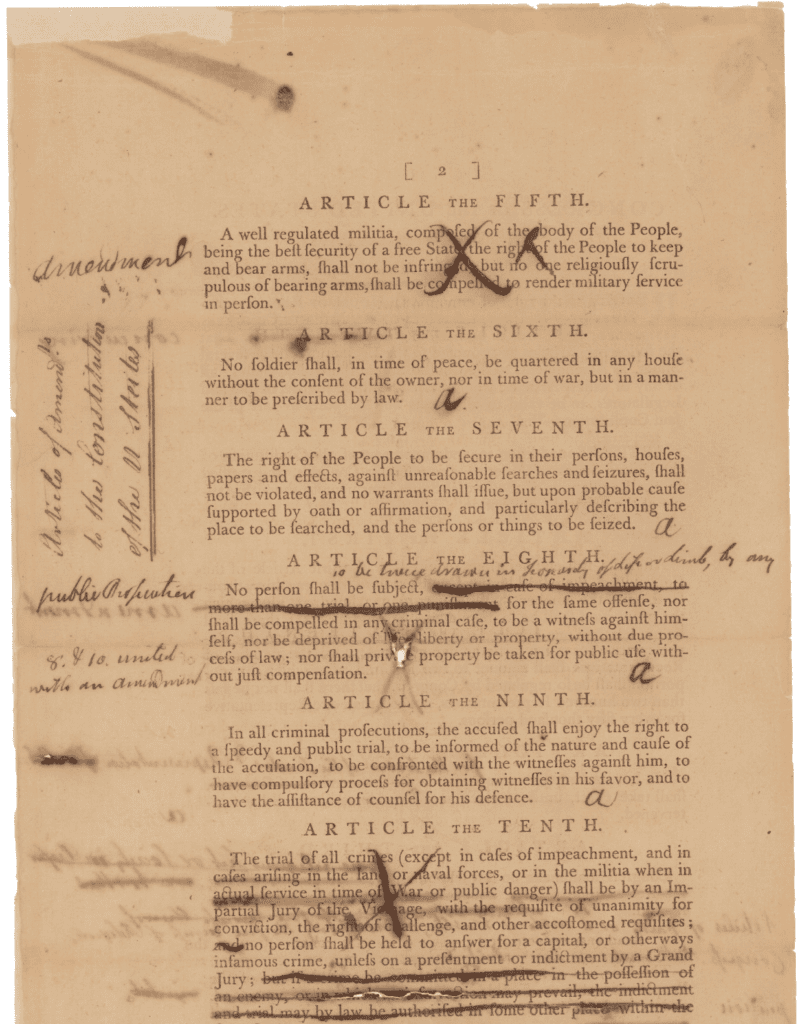 [ 2 ]
ARTICLE THE FIFTH.
A well regulated militia, compoſed of the body of the People,
being the beſt ſecurity of a free State, the right of the People to keep
and bear arms, ſhall not be infringed, but no one religiouſly ſcru-
pulous of bearing arms, ſhall be compelled to render military ſervice
in perſon.
amendment
ARTICLE THE SIXTH.
No ſoldier ſhall, in time of peace, be quartered in any houſe
without the conſent of the owner, nor in time of war, but in a man-
ner to be preſcribed by law. a
Articles of Amend.ts
to the Constitution
of the U States
ARTICLE THE SEVENTH.
The right of the People to be ſecure in their perſons, houſes,
papers and effects, againſt unreaſonable ſearches and ſeizures, ſhall
not be violated, and no warrants ſhall iſſue, but upon probable cauſe
ſupported by oath or affirmation, and particularly deſcribing the
place to be ſearched, and the perſons or things to be ſeized. a
ARTICLE THE EIGHTH.
to be twice drawn in jeopardy of life or limb, by any
public Prosecution
No perſon ſhall be ſubject, except in caſe of impeachment, to
more than one trial or one puniſhment for the ſame offenſe, nor
ſhall be compelled in any criminal caſe, to be a witneſs againſt him-
ſelf, nor be deprived of liberty or property, without due pro-
ceſs of law; nor ſhall private property be taken for public uſe with-
out juſt compenſation. a
8. & 10. united
with an amendment
ARTICLE THE NINTH.
In all criminal proſecutions, the accuſed ſhall enjoy the right to
a ſpeedy and public trial, to be informed of the nature and cauſe of
the accuſation, to be confronted with the witneſſes againſt him, to
have compulſory proceſs for obtaining witneſſes in his favor, and to
have the aſſiſtance of counſel for his defence. a
ARTICLE THE TENTH.
The trial of all crimes (except in caſes of impeachment, and in
caſes ariſing in the land or naval forces, or in the militia when in
actual ſervice in time of War or public danger) ſhall be by an Im-
partial Jury of the Vicinage, with the requiſite of unanimity for
conviction, the right of challenge, and other accoſtomed requiſites;
and no perſon ſhall be held to anſwer for a capital, or otherways
infamous crime, unleſs on a preſentment or indictment by a Grand
Jury; but if a crime be committed in a place in the poſſeſſion of
an enemy, or in which may prevail, the indictment
and trial may by law be authoriſed in ſome other place within the